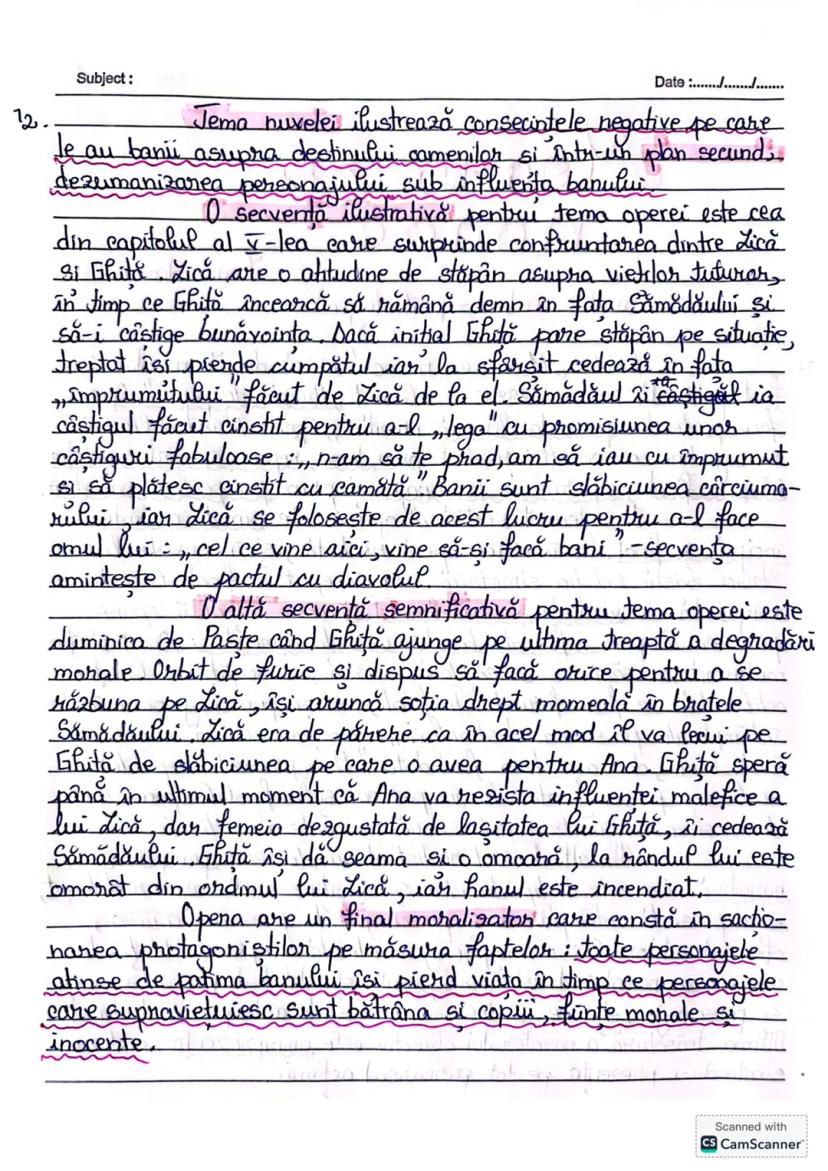 Subject :
Date :......./......./.......
12.
Tema nuvelei ilustrează consecințele negative pe care
le au banii asupra destinului oamenilor și într-un plan secund,
dezumanizarea personajului sub influența banului.
O secvență ilustrativă pentru tema operei este cea
din capitolul al V-lea care surprinde confruntarea dintre Lică
și Ghiță. Lică are o atitudine de stăpân asupra vieților tuturor,
în timp ce Ghiță încearcă să rămână demn în fața Sămădăului și
să-i câștige bunăvoința. Dacă inițial Ghiță pare stăpân pe situație,
treptat își pierde cumpătul iar la sfârșit cedează în fața
„împrumutului" făcut de Lică de la el. Sămădăul îi ia
câștigul făcut cinstit pentru a-l „lega" cu promisiunea unor
câștiguri fabuloase : „n-am să te prad, am să iau cu împrumut
și să plătesc cinstit cu camătă" Banii sunt slăbiciunea cârciuma-
rului, iar Lică se folosește de acest lucru pentru a-l face
omul lui : „cel ce vine aici, vine să-și facă bani" - secvența
amintește de pactul cu diavolul.
O altă secvență semnificativă pentru tema operei este
duminica de Paște când Ghiță ajunge pe ultima treaptă a degradări
morale. Orbit de furie și dispus să facă orice pentru a se
răzbuna pe Lică, își aruncă soția drept momeală în brațele
Sămădăului. Lică era de părere ca în acel mod îl va lecui pe
Ghiță de slăbiciunea pe care o avea pentru Ana. Ghiță speră
până în ultimul moment că Ana va rezista influenței malefice a
lui Lică, dar femeia dezgustată de lașitatea lui Ghiță, îi cedează
Sămădăului. Ghiță își dă seama și o omoară, la rândul lui este
omorât din ordinul lui Lică, iar hanul este incendiat.
Opera are un final moralizator care constă în sacțio-
narea protagoniștilor pe măsura faptelor : toate personajele
atinse de patima banului își pierd viața în timp ce personajele
care supraviețuiesc sunt bătrâna și copiii, ființe morale și
inocente.
Scanned with
CS CamScanner